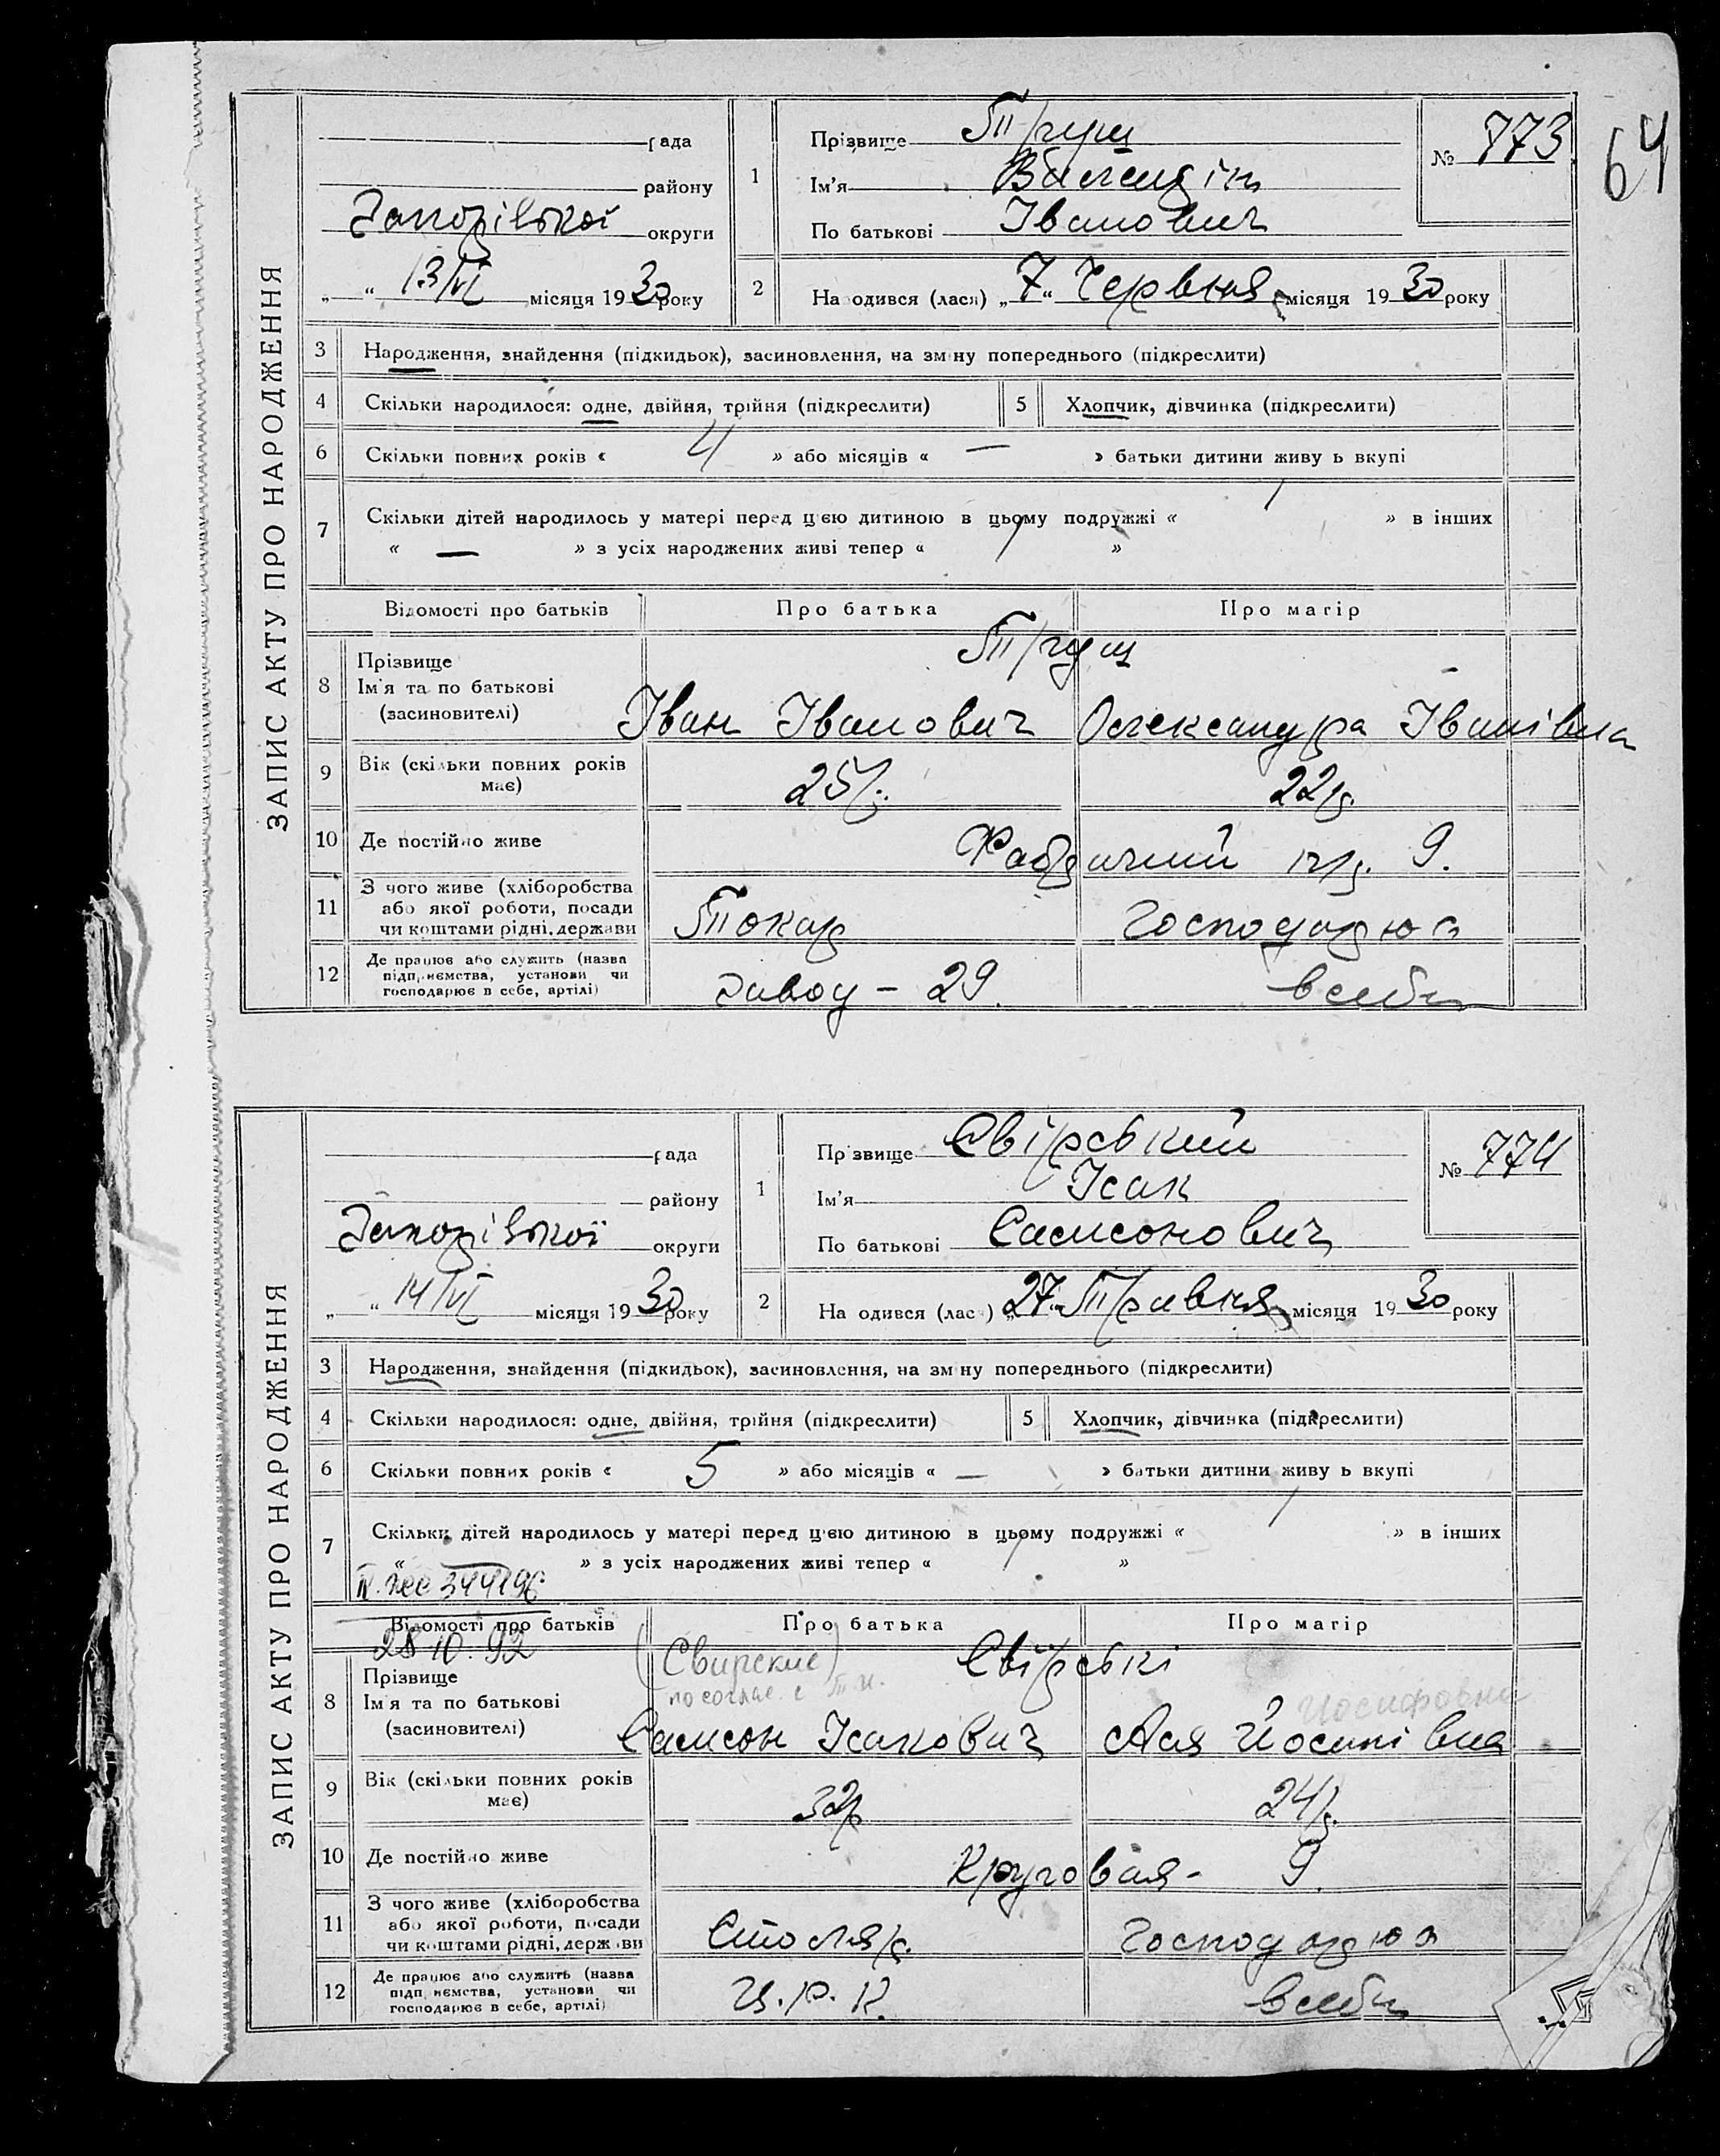 64
ЗАПИС АКТУ ПРО НАРОДЖЕННЯ
рада
району
Запорізької округи
„ “ 13/VI місяця 1930 року
1
Прізвище
Ім'я Валендін
По батькові Іванович
№ 773
2 На одився (лася) „7“ Червня місяця 1930 року
3 Народження, знайдення (підкидьок), засиновлення, на зм ну попереднього (підкреслити)
4 Скільки народилося: одне, двійня, трійня (підкреслити) 5 Хлопчик, дівчинка (підкреслити)
6 Скільки повних років « 4 » або місяців « — » батьки дитини живу ь вкупі
7 Скільки дітей народилось у матері перед ц'єю дитиною в цьому подружжі « 1 » в інших
« — » з усіх народжених живі тепер « 1 »
Відомості про батьків Про батька Про матір
8 Прізвище
Ім'я та по батькові
(засиновителі)
Іван Іванович Олександра Іванівна
9 Вік (скільки повних років має) 25р. 22р.
10 Де постійно живе Фабричний пр. 9.
11 З чого живе (хліборобства
або якої роботи, посади
чи коштами рідні, держави
Токар Господарюэ
12 Де працює або служить (назва
підприємства, установи чи
господарює в себе, артілі)
Завод - 29. в себе
ЗАПИС АКТУ ПРО НАРОДЖЕННЯ
рада
району
Запорізької округи
„ “ 14/VI місяця 1930 року
1
Пр звище Свірський
Ім'я Ісак
По батькові Самсонович
№ 774
2 На одився (лас ) „27“ Травня місяця 1930 року
3 Народження, знайдення (підкидьок), засиновлення, на зм ну попереднього (підкреслити)
4 Скільки народилося: одне, двійня, трійня (підкреслити) 5 Хлопчик, дівчинка (підкреслити)
6 Скільки повних років « 5 » або місяців « — » батьки дитини живу ь вкупі
7 Скільки дітей народилось у матері перед ц'єю дитиною в цьому подружжі « 1 » в інших
« — » з усіх народжених живі тепер « 1 »
28.10.92
Відомості про батьків Про батька Про матір
(Свирские) Свірські
8 Прізвище
Ім'я та по батькові
(засиновителі)
Иосифовна
Самсон Ісакович Ася Йосипівна
9 Вік (скільки повних років має) 32р 24р.
10 Де постійно живе Круговая - 9.
11 З чого живе (хліборобства
або якої роботи, посади
чи коштами рідні, держ ви
Столяр. Господарюэ
12 Де працює або служить (назва
підп иємства, установи чи
господарює в себе, артілі)
Ц.Р.К. в себе